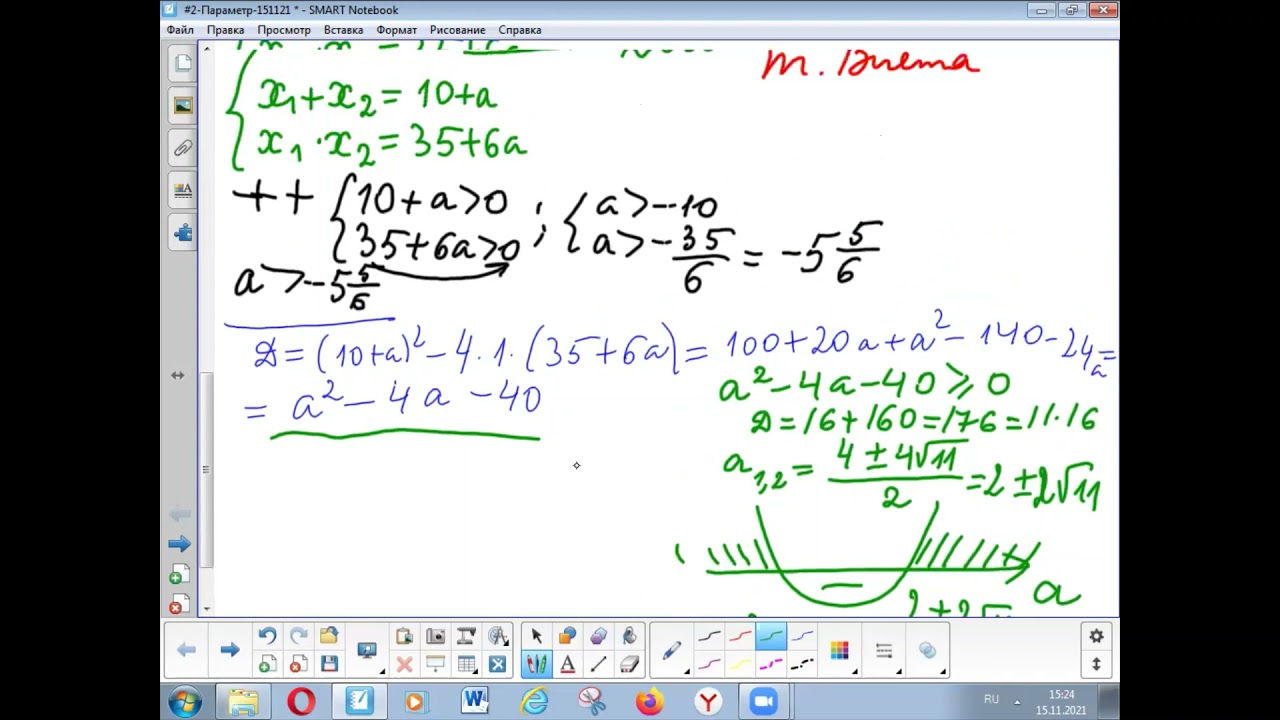 #2-Параметр-151121 * - SMART Notebook
Файл Правка Просмотр Вставка Формат Рисование Справка
т. Виета
x₁+x₂ = 10+a
x₁·x₂ = 35+6a
++ {10+a>0 ; {a>-10
{35+6a>0 {a>-35/6 = -5 5/6
a>-5 5/6
Д = (10+a)² - 4·1·(35+6a) = 100+20a+a² - 140-24a =
= a² - 4a - 40
a²-4a-40 ⩾ 0
Д = 16+160 = 176 = 11·16
a₁,₂ = (4±4√11)/2 = 2±2√11
−
a
RU
15:24
15.11.2021